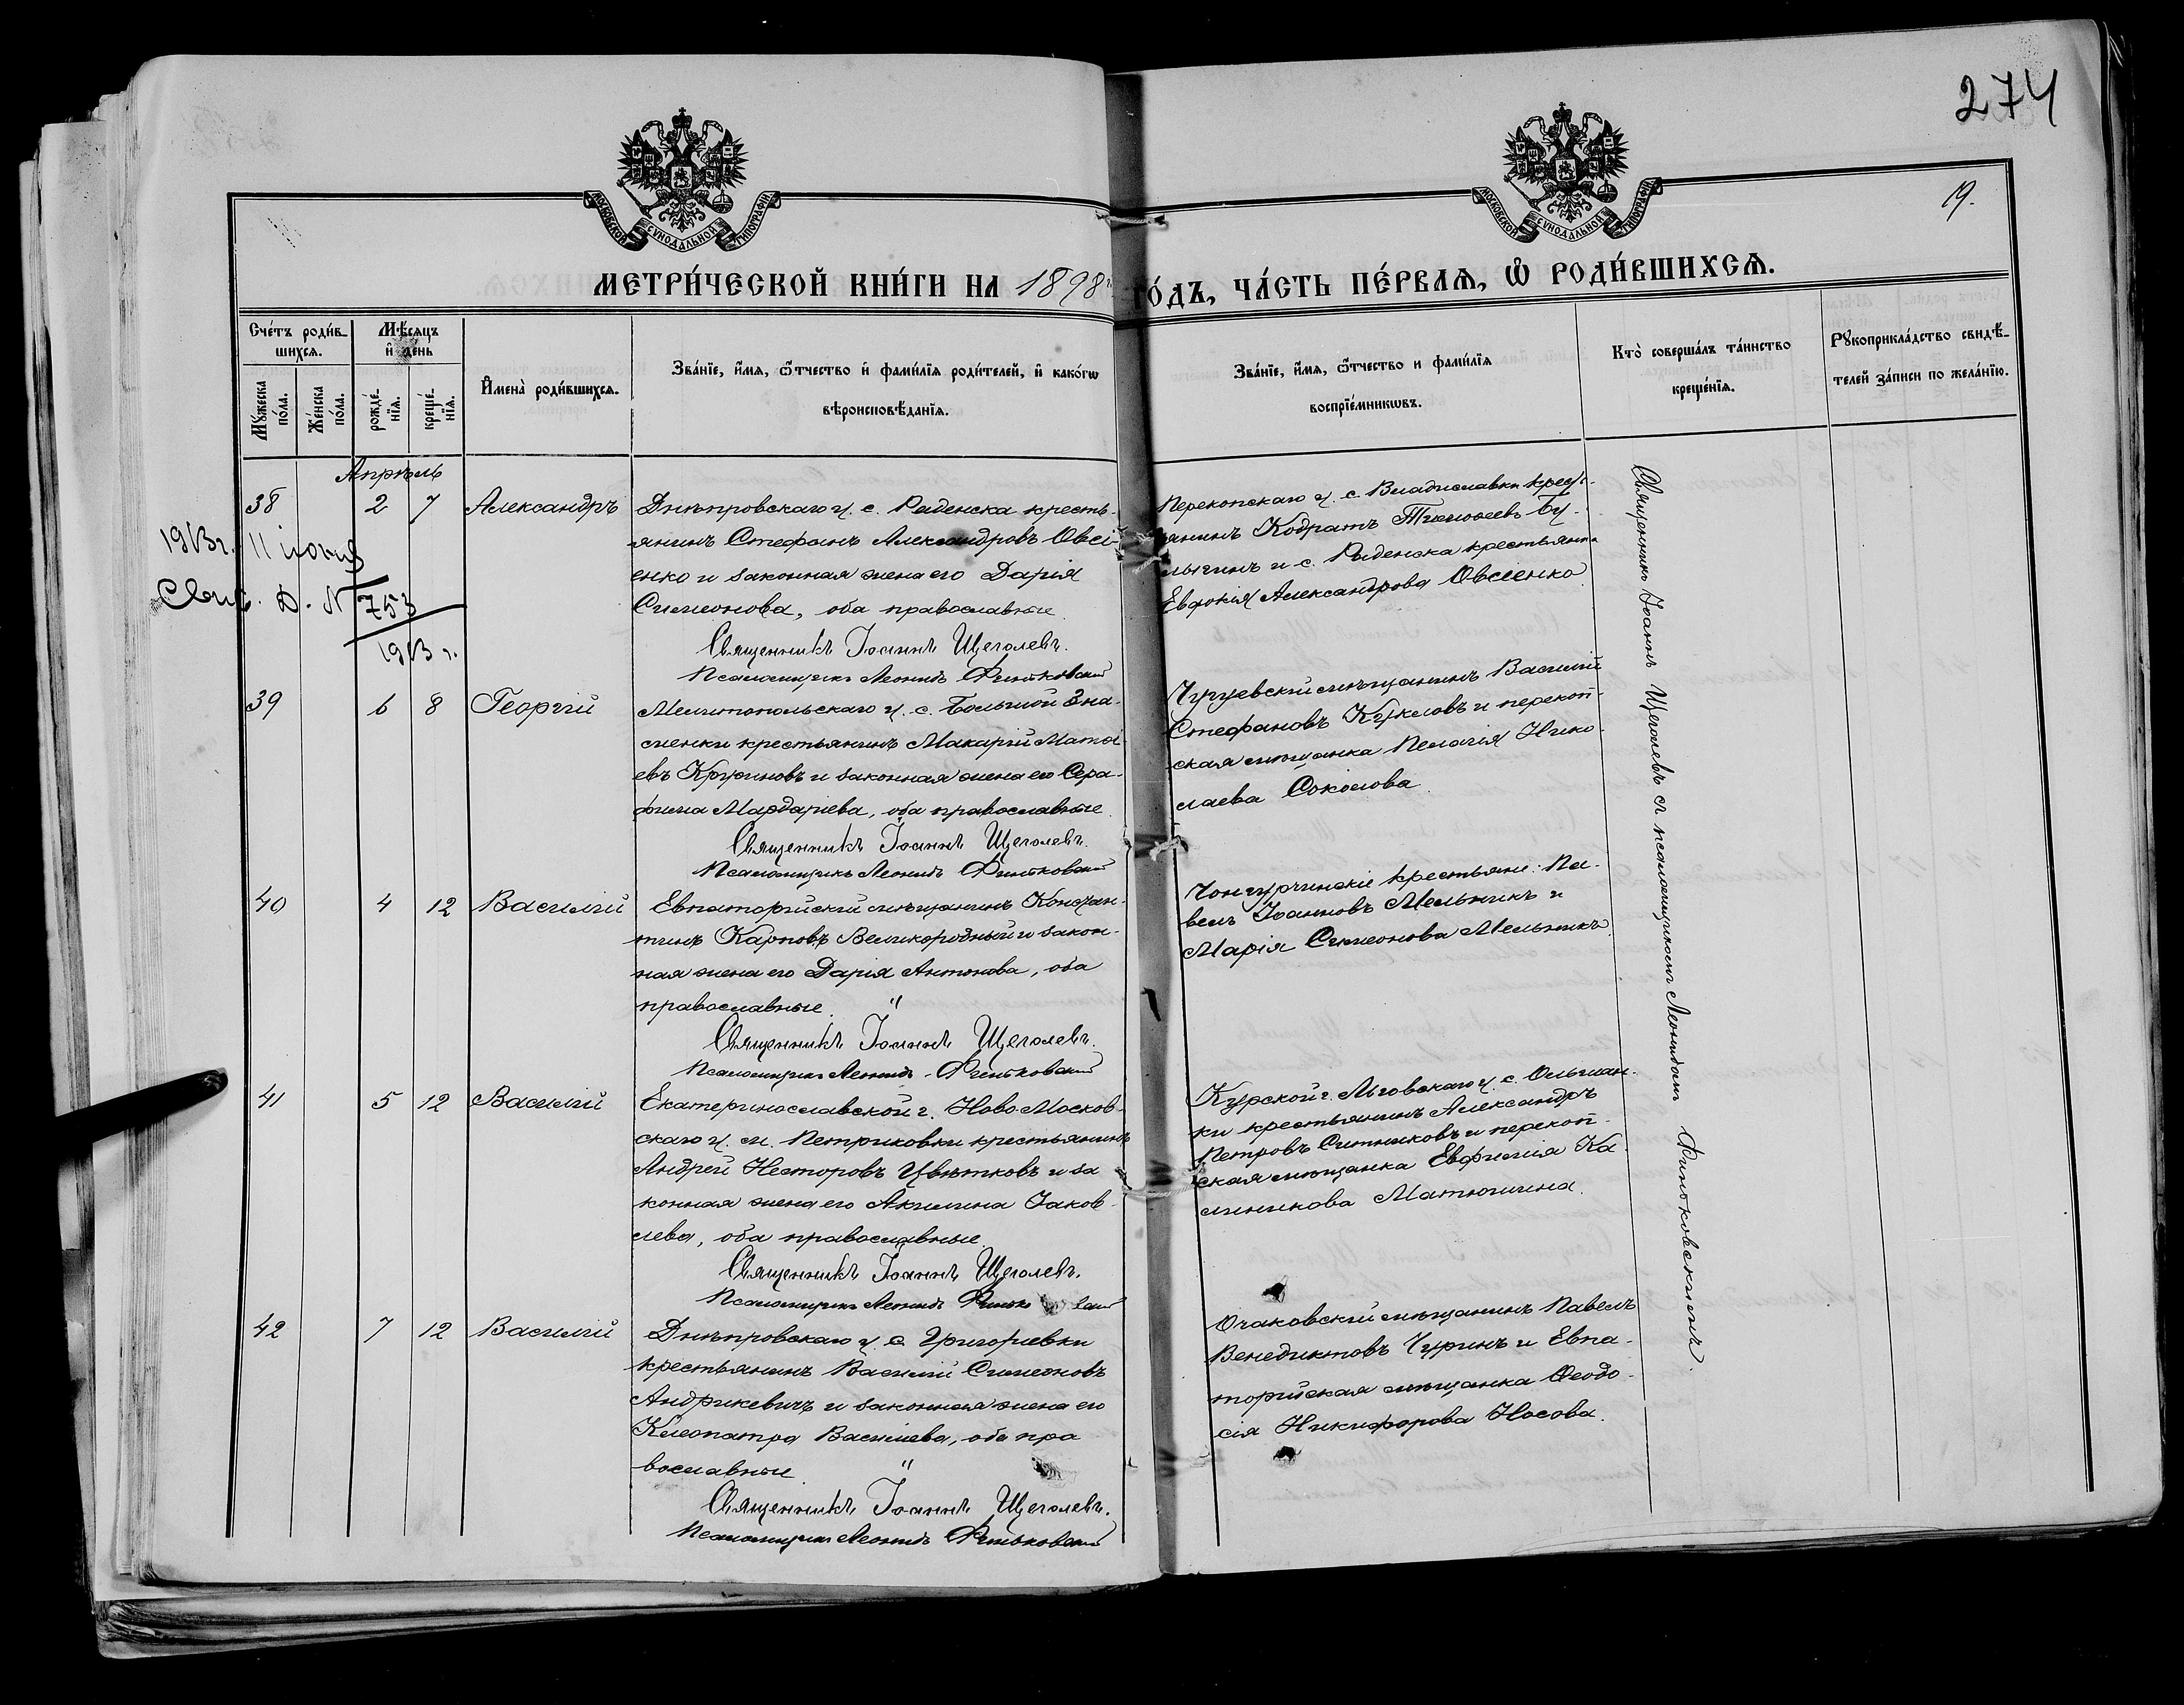 274
19.
МОСКОВСКОЙ СѴНОДАЛЬНОЙ ТИПОГРАФІИ
МОСКОВСКОЙ СѴНОДАЛЬНОЙ ТИПОГРАФІИ
МЕТРИ́ЧЕСКОЙ КНИ́ГИ НА 1898 г. ГО́ДЪ, ЧА́СТЬ ПЕ́РВАѦ, Ѽ РОДИ́ВШИХСѦ.
Сче́тъ роди́в-
шихсѧ.
Мѣ́сѧцъ
и҆ день
Мꙋ́жеска
по́ла.
Же́нска
по́ла.
рожде́-
нїѧ.
креще́-
нїѧ.
И҆мена̀ роди́вшихсѧ.
Зва́нїе, и҆́мѧ, ѻ҆́тчество и҆ фами́лїѧ роди́телей, и҆ како́гѡ
вѣроисповѣ́данїѧ.
Зва́нїе, и҆́мѧ, ѻ҆́тчество и фами́лїѧ
воспрїе́мникѡвъ.
Кто̀ соверша́лъ та́инство
креще́нїѧ.
Рꙋкоприкла́дство свидѣ́-
телей за́писи по жела́нїю.
Апрѣль
38 2 7 Александръ
Днѣпровскаго у. с. Раденска кресть-
янинъ Стефанъ Александровъ Овсі-
енко и законная жена его Дарія
Симеонова, оба православные.
Священникъ Іоаннъ Щеголевъ.
Псаломщикъ Леонидъ Финьковскій
Перекопскаго у. с. Владиславки крест-
янинъ Кодратъ Тимофеевъ Бу-
лыгинъ и с. Раденска крестьянка
Евдокія Александрова Овсіенко
1913 г. 11 іюня
Свид. Д. N 753
1913 г.
39 6 8 Георгій
Мелитопольскаго у. с. Большой Зна-
менки крестьянинъ Макарій Матѳі-
евъ Кружновъ и законная жена его Сера-
фима Мардаріева, оба православные.
Священникъ Іоаннъ Щеголевъ.
Псаломщикъ Леонидъ Финьковскій
Чугуевскій мѣщанинъ Василій
Стефановъ Куколовъ и перекоп-
ская мѣщанка Пелагія Нико-
лаева Соколова.
40 4 12 Василій
Евпаторійскій мѣщанинъ Констан-
тинъ Карповъ Великородный и закон-
ная жена его Дарія Антонова, оба
православные. "
Священникъ Іоаннъ Щеголевъ.
Псаломщикъ Леонидъ Финьковскій
Чонгурчинскіе крестьяне: Па-
велъ Іоанновъ Мельникъ и
Марія Симеонова Мельникъ.
41 5 12 Василій
Екатеринославской г. Ново Москов-
скаго у. м. Петриковки крестьянинъ
Андрей Несторовъ Цвѣтковъ и за
конная жена его Акилина Іаков-
лева, оба православные.
Священникъ Іоаннъ Щеголевъ.
Псаломщикъ Леонидъ
Курской г. Льговскаго у. с. Ольшан-
ки крестьянинъ Александръ
Петровъ Ситниковъ и перекоп-
ская мѣщанка Евфимія Ка-
линикова Матюшина.
42 7 12 Василій
Днѣпровскаго у. с. Григорьевки
крестьянинъ Василій Симеоновъ
Андрикевичъ и законная жена его
Клеопатра Васильева, оба пра
вославные. "
Священникъ Іоаннъ Щеголевъ.
Псаломщикъ Леонидъ Финьковскій
Очаковскій мѣщанинъ Павелъ
Венедиктовъ Чуринъ и Евпа-
торійская мѣщанка Ѳеодо-
сія Никифорова Носова.
Священникъ Іоаннъ Щеголевъ съ псаломщикомъ Леонидомъ Финьковскимъ.